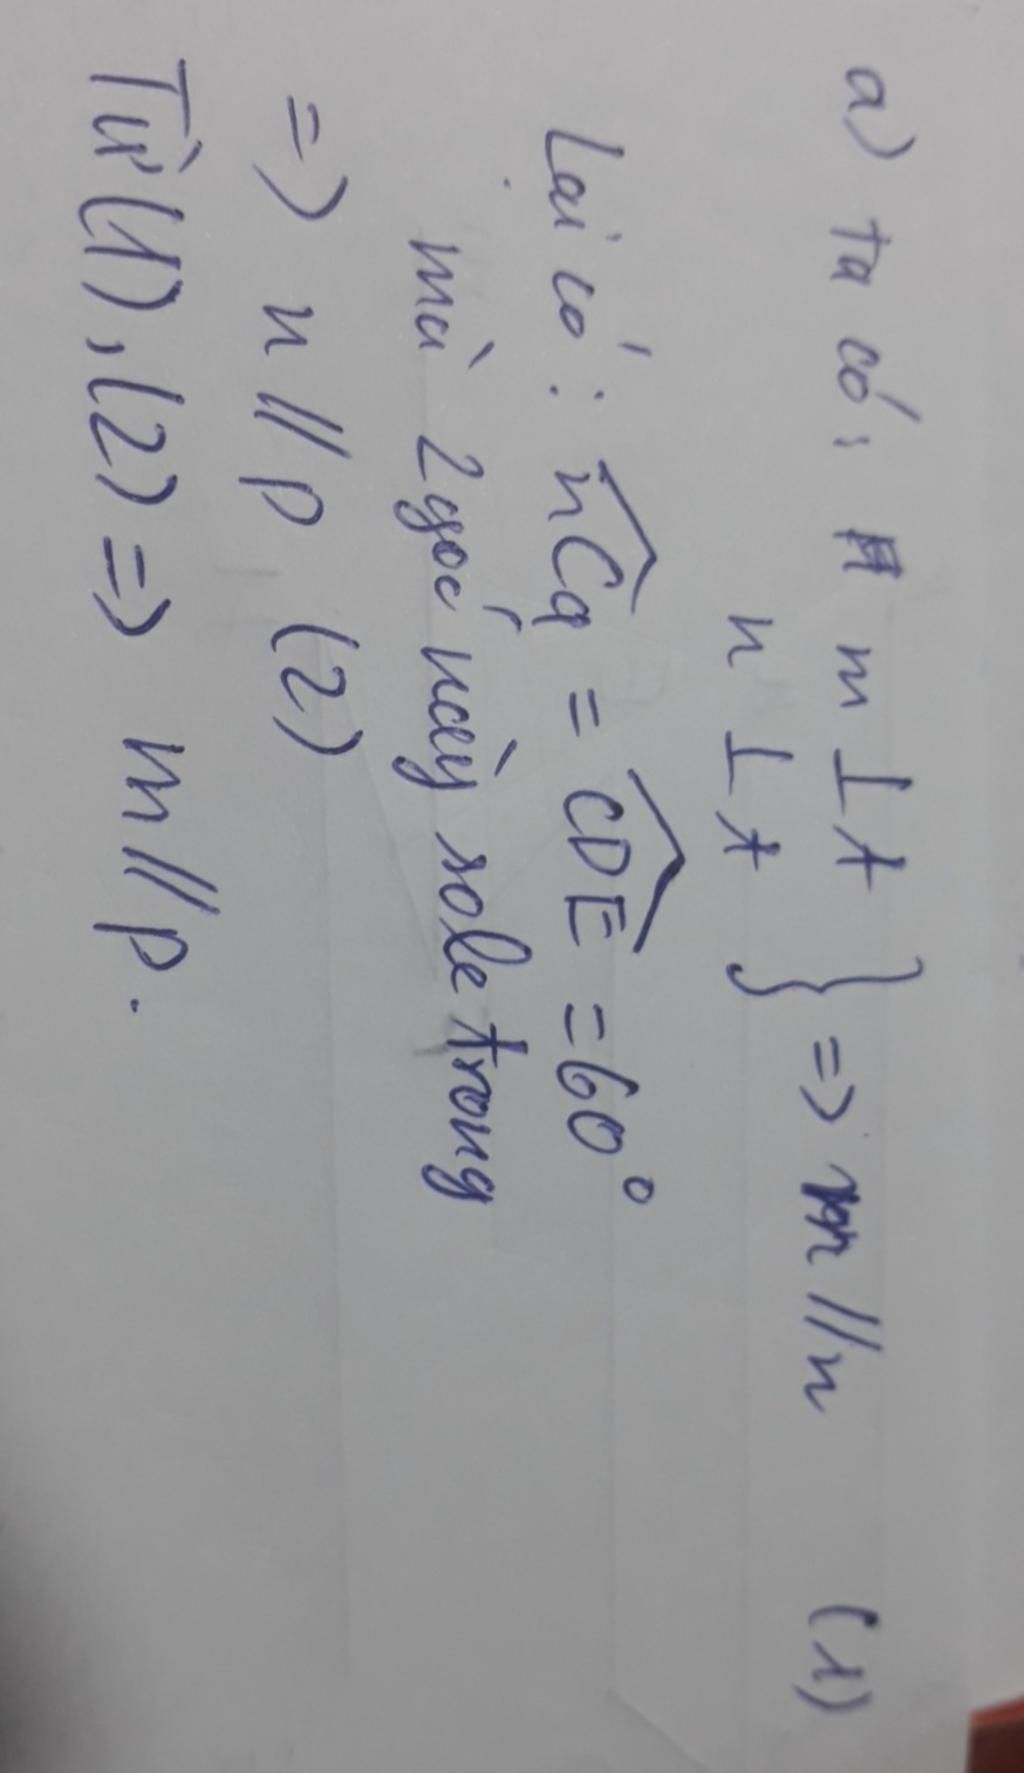 a) ta có: m ⊥ t
n ⊥ t } => m // n (1)
Lại có: $\widehat{nCq}$ = $\widehat{CDE}$ = 60°
mà 2 góc này sole trong
=> n // p (2)
Từ (1), (2) => m // p.